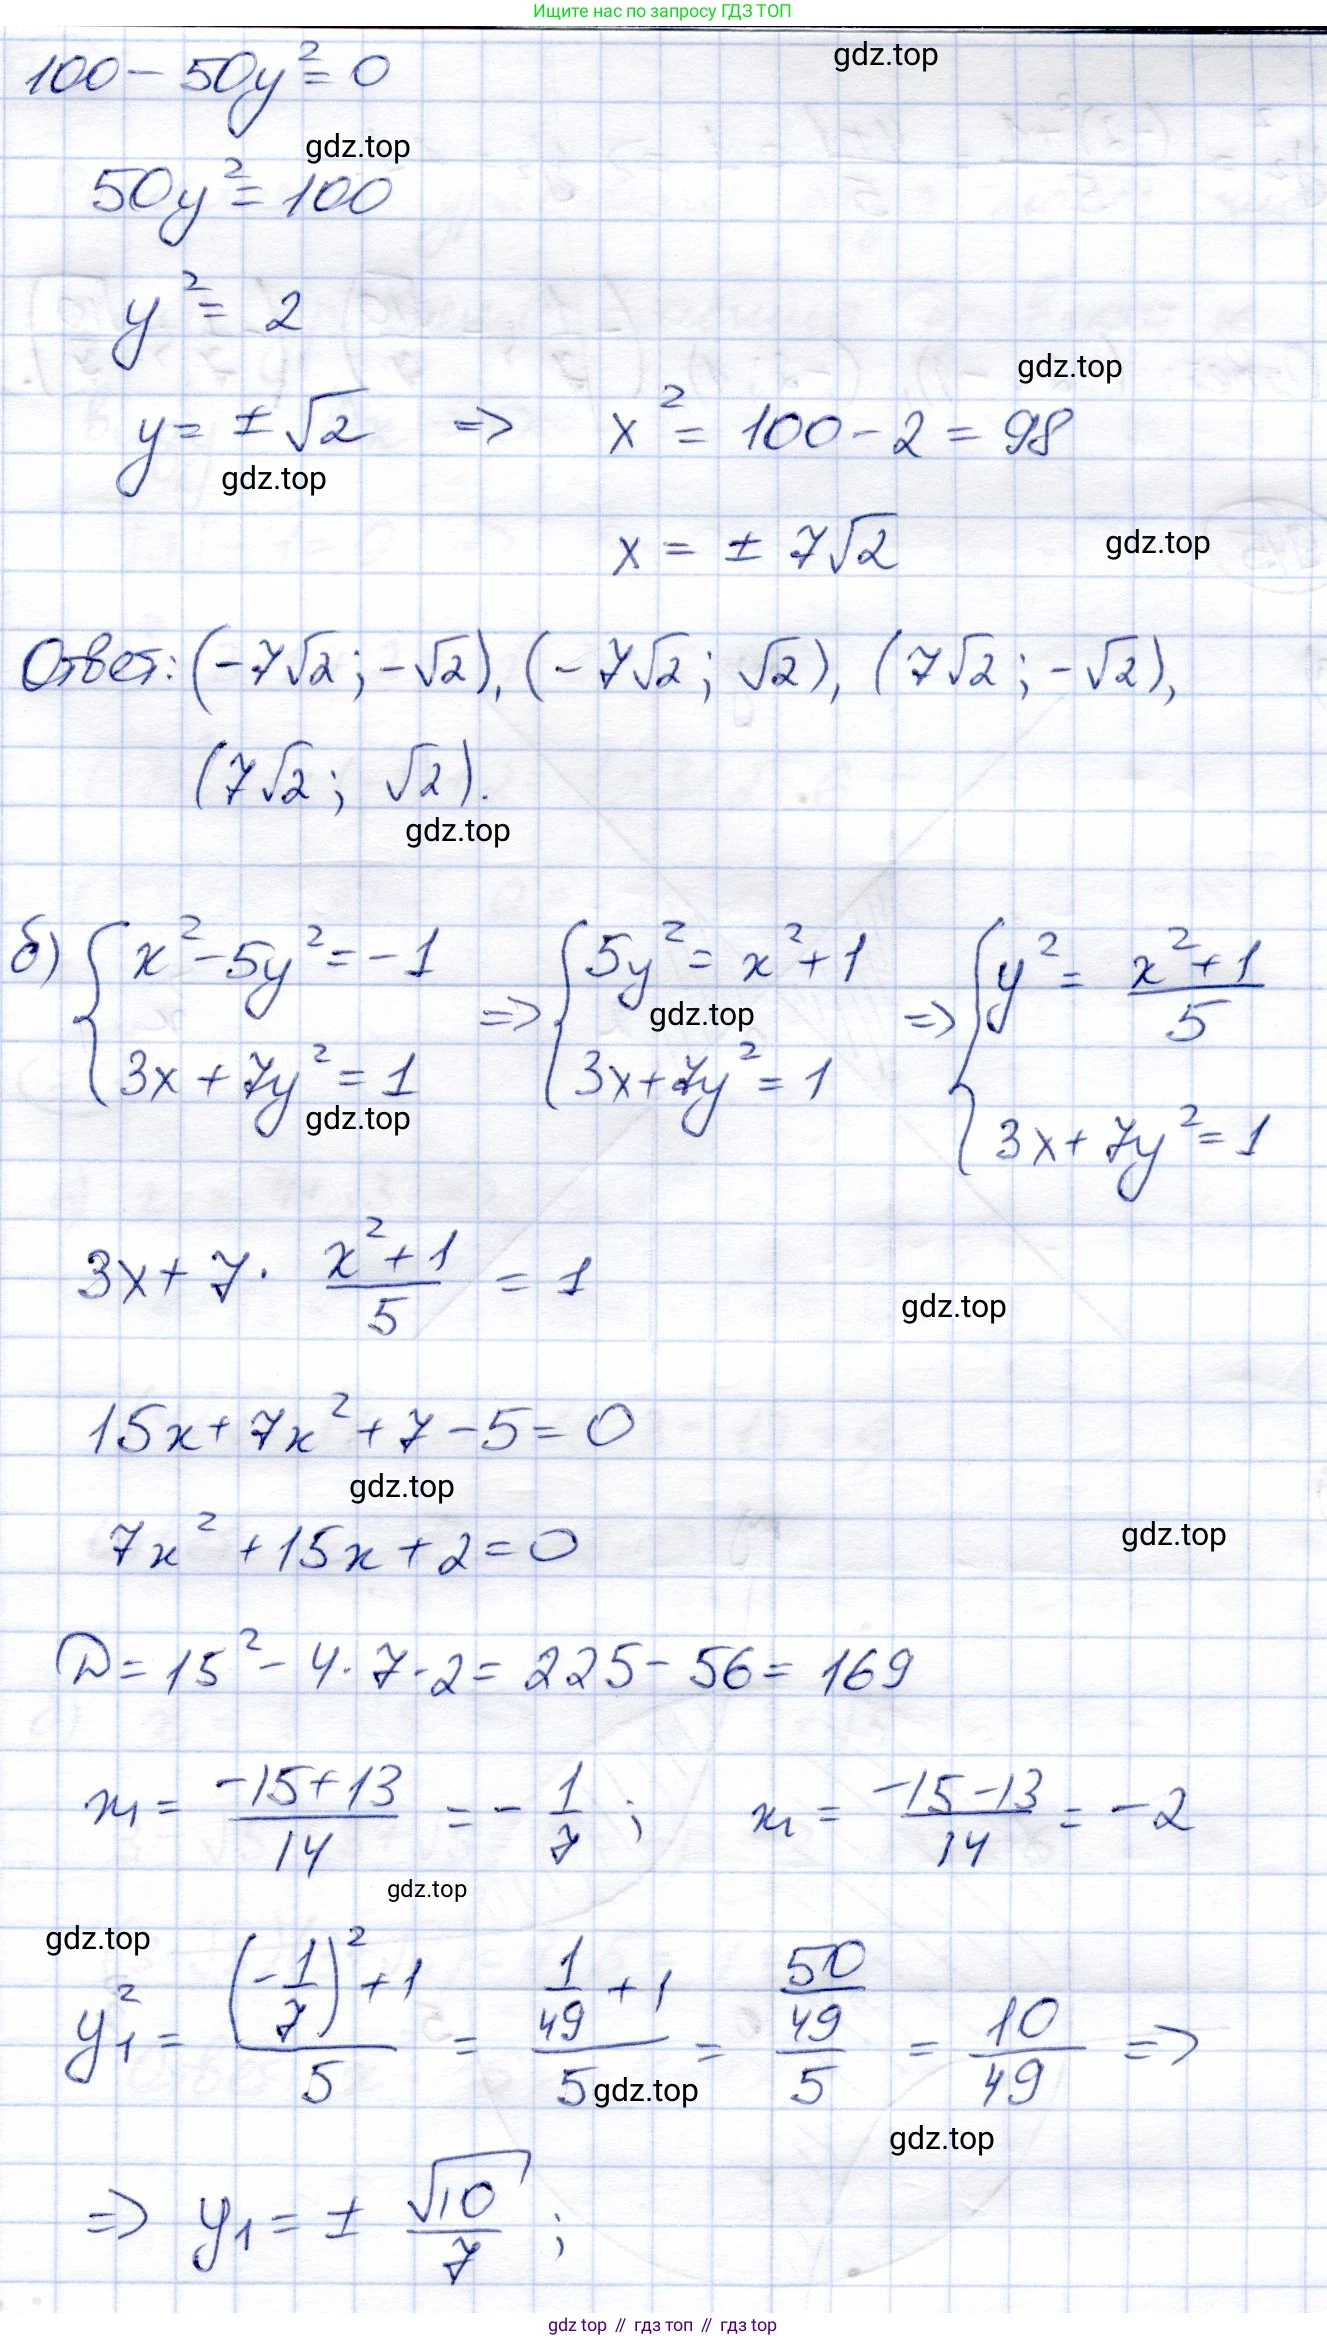 Ищите нас по запросу ГДЗ ТОП
100 - 50y² = 0
gdz.top
gdz.top
50y² = 100
y² = 2
gdz.top
y = ± √2 => x² = 100 - 2 = 98
gdz.top
x = ± 7√2
gdz.top
Ответ: (-7√2; -√2), (-7√2; √2), (7√2; -√2),
(7√2; √2).
gdz.top
б) { x² - 5y² = -1 => { 5y² = x² + 1 => { y² = (x² + 1)/5
gdz.top
3x + 7y² = 1 3x + 7y² = 1 3x + 7y² = 1
gdz.top
3x + 7 · (x² + 1)/5 = 1
gdz.top
15x + 7x² + 7 - 5 = 0
gdz.top
7x² + 15x + 2 = 0
gdz.top
D = 15² - 4 · 7 · 2 = 225 - 56 = 169
x₁ = (-15 + 13)/14 = - 1/7 ; x₁ = (-15 - 13)/14 = -2
gdz.top
gdz.top
y₁² = ((-1/7)² + 1)/5 = (1/49 + 1)/5 = (50/49)/5 = 10/49 =>
gdz.top
gdz.top
=> y₁ = ± √10/7 ;
gdz top // гдз топ // gdz top